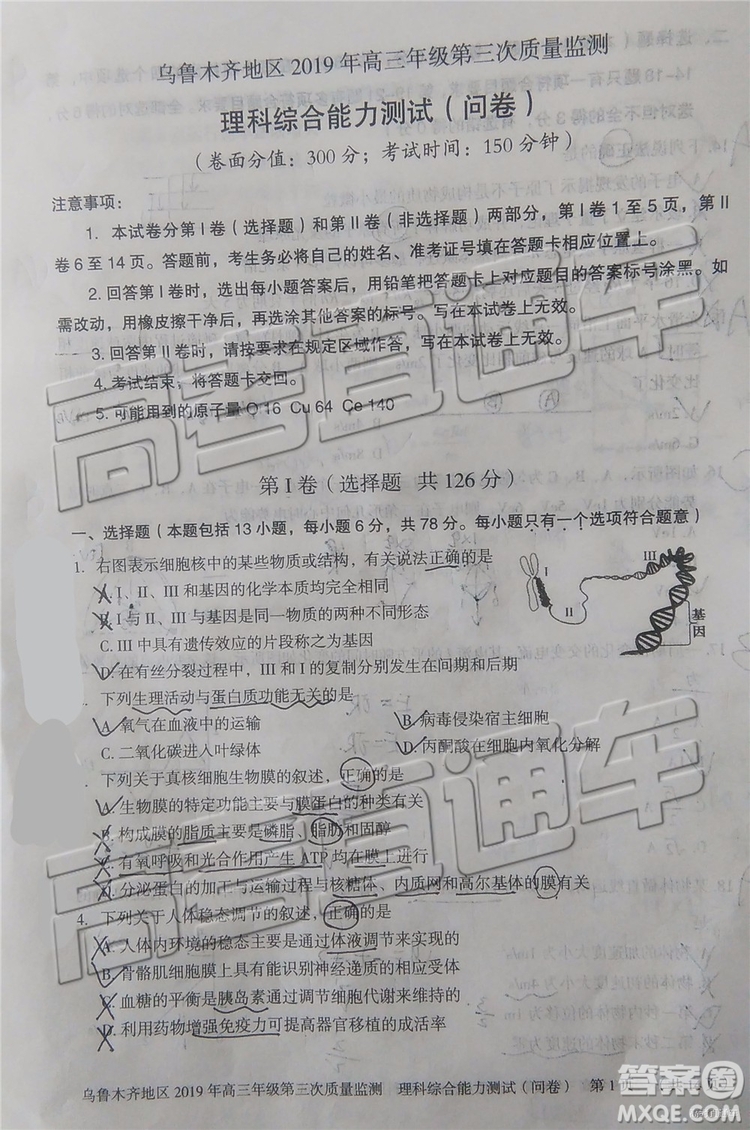 乌鲁木齐地区2019年高三年级第三次质量监测
理科综合能力测试(问卷)
(卷面分值:300分;考试时间:150分钟)
注意事项:
1. 本试卷分第I卷(选择题)和第II卷(非选择题)两部分,第I卷1至5页,第II
卷6至14页。答题前,考生务必将自己的姓名、准考证号填在答题卡相应位置上。
2. 回答第I卷时,选出每小题答案后,用铅笔把答题卡上对应题目的答案标号涂黑。如
需改动,用橡皮擦干净后,再选涂其他答案的标号。写在本试卷上无效。
3. 回答第II卷时,请按要求在规定区域作答,写在本试卷上无效。
4. 考试结束,将答题卡交回。
5. 可能用到的原子量 O 16 Cu 64 Ce 140
第I卷(选择题 共126分)
一、选择题(本题包括13小题,每小题6分,共78分。每小题只有一个选项符合题意)
1. 右图表示细胞核中的某些物质或结构,有关叙述正确的是
A. I、II、III和基因的化学本质均完全相同
B. I与II与基因是同一物质的两种不同形态
C. III中具有遗传效应的片段称之为基因
D. 在有丝分裂过程中,III和I的复制分别发生在间期和后期
I
II
III
基因
下列生理活动与蛋白质功能无关的是
A. 氧气在血液中的运输 B. 病毒侵染宿主细胞
C. 二氧化碳进入叶绿体 D. 丙酮酸在细胞内氧化分解
下列关于真核细胞生物膜的叙述,正确的是
A. 生物膜的特定功能主要与膜蛋白的种类有关
B. 构成膜的脂质主要是磷脂、脂肪和固醇
C. 有氧呼吸和光合作用产生ATP均在膜上进行
D. 分泌蛋白的加工与运输过程与核糖体、内质网和高尔基体的膜有关
4. 下列关于人体稳态调节的叙述,正确的是
A. 人体内环境的稳态主要通过体液调节来实现的
B. 骨骼肌细胞膜上具有能识别神经递质的相关受体
C. 血糖的平衡是胰岛素通过细胞代谢来维持的
D. 利用药物增强免疫力可提高器官移植的成活率
乌鲁木齐地区2019年高三年级第三次质量监测 理科综合能力测试(问卷) 第1页
高考直通车
高考直通车
答案圈
MXQE.COM